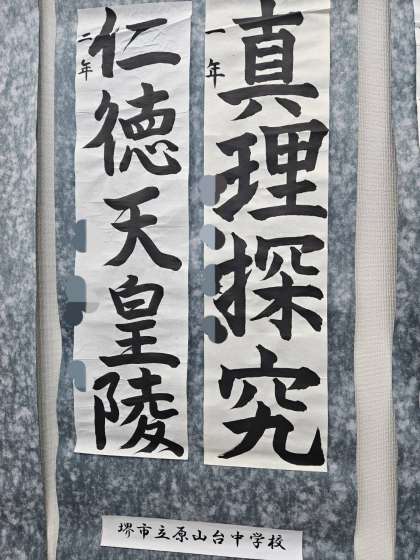 真理探究
一年
仁徳天皇陵
二年
堺市立原山台中学校